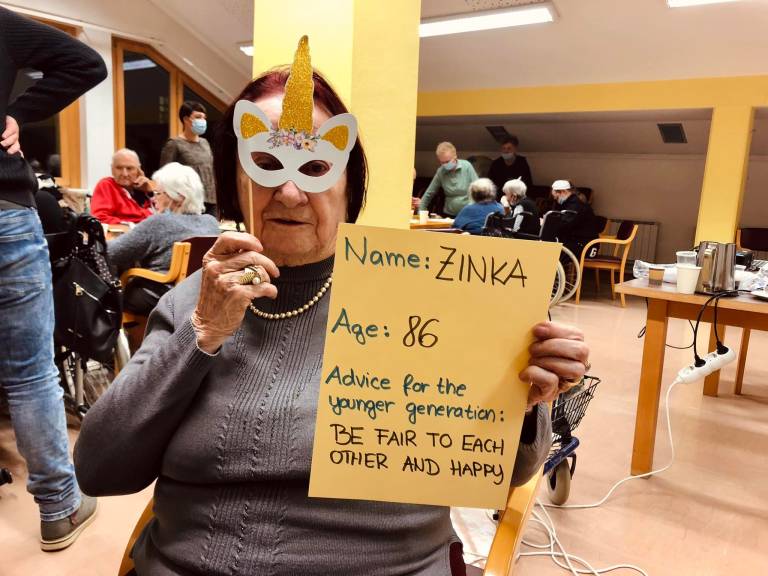 Name: ŽINKA
Age: 86
Advice for the
younger generation:
BE FAIR TO EACH
OTHER AND HAPPY